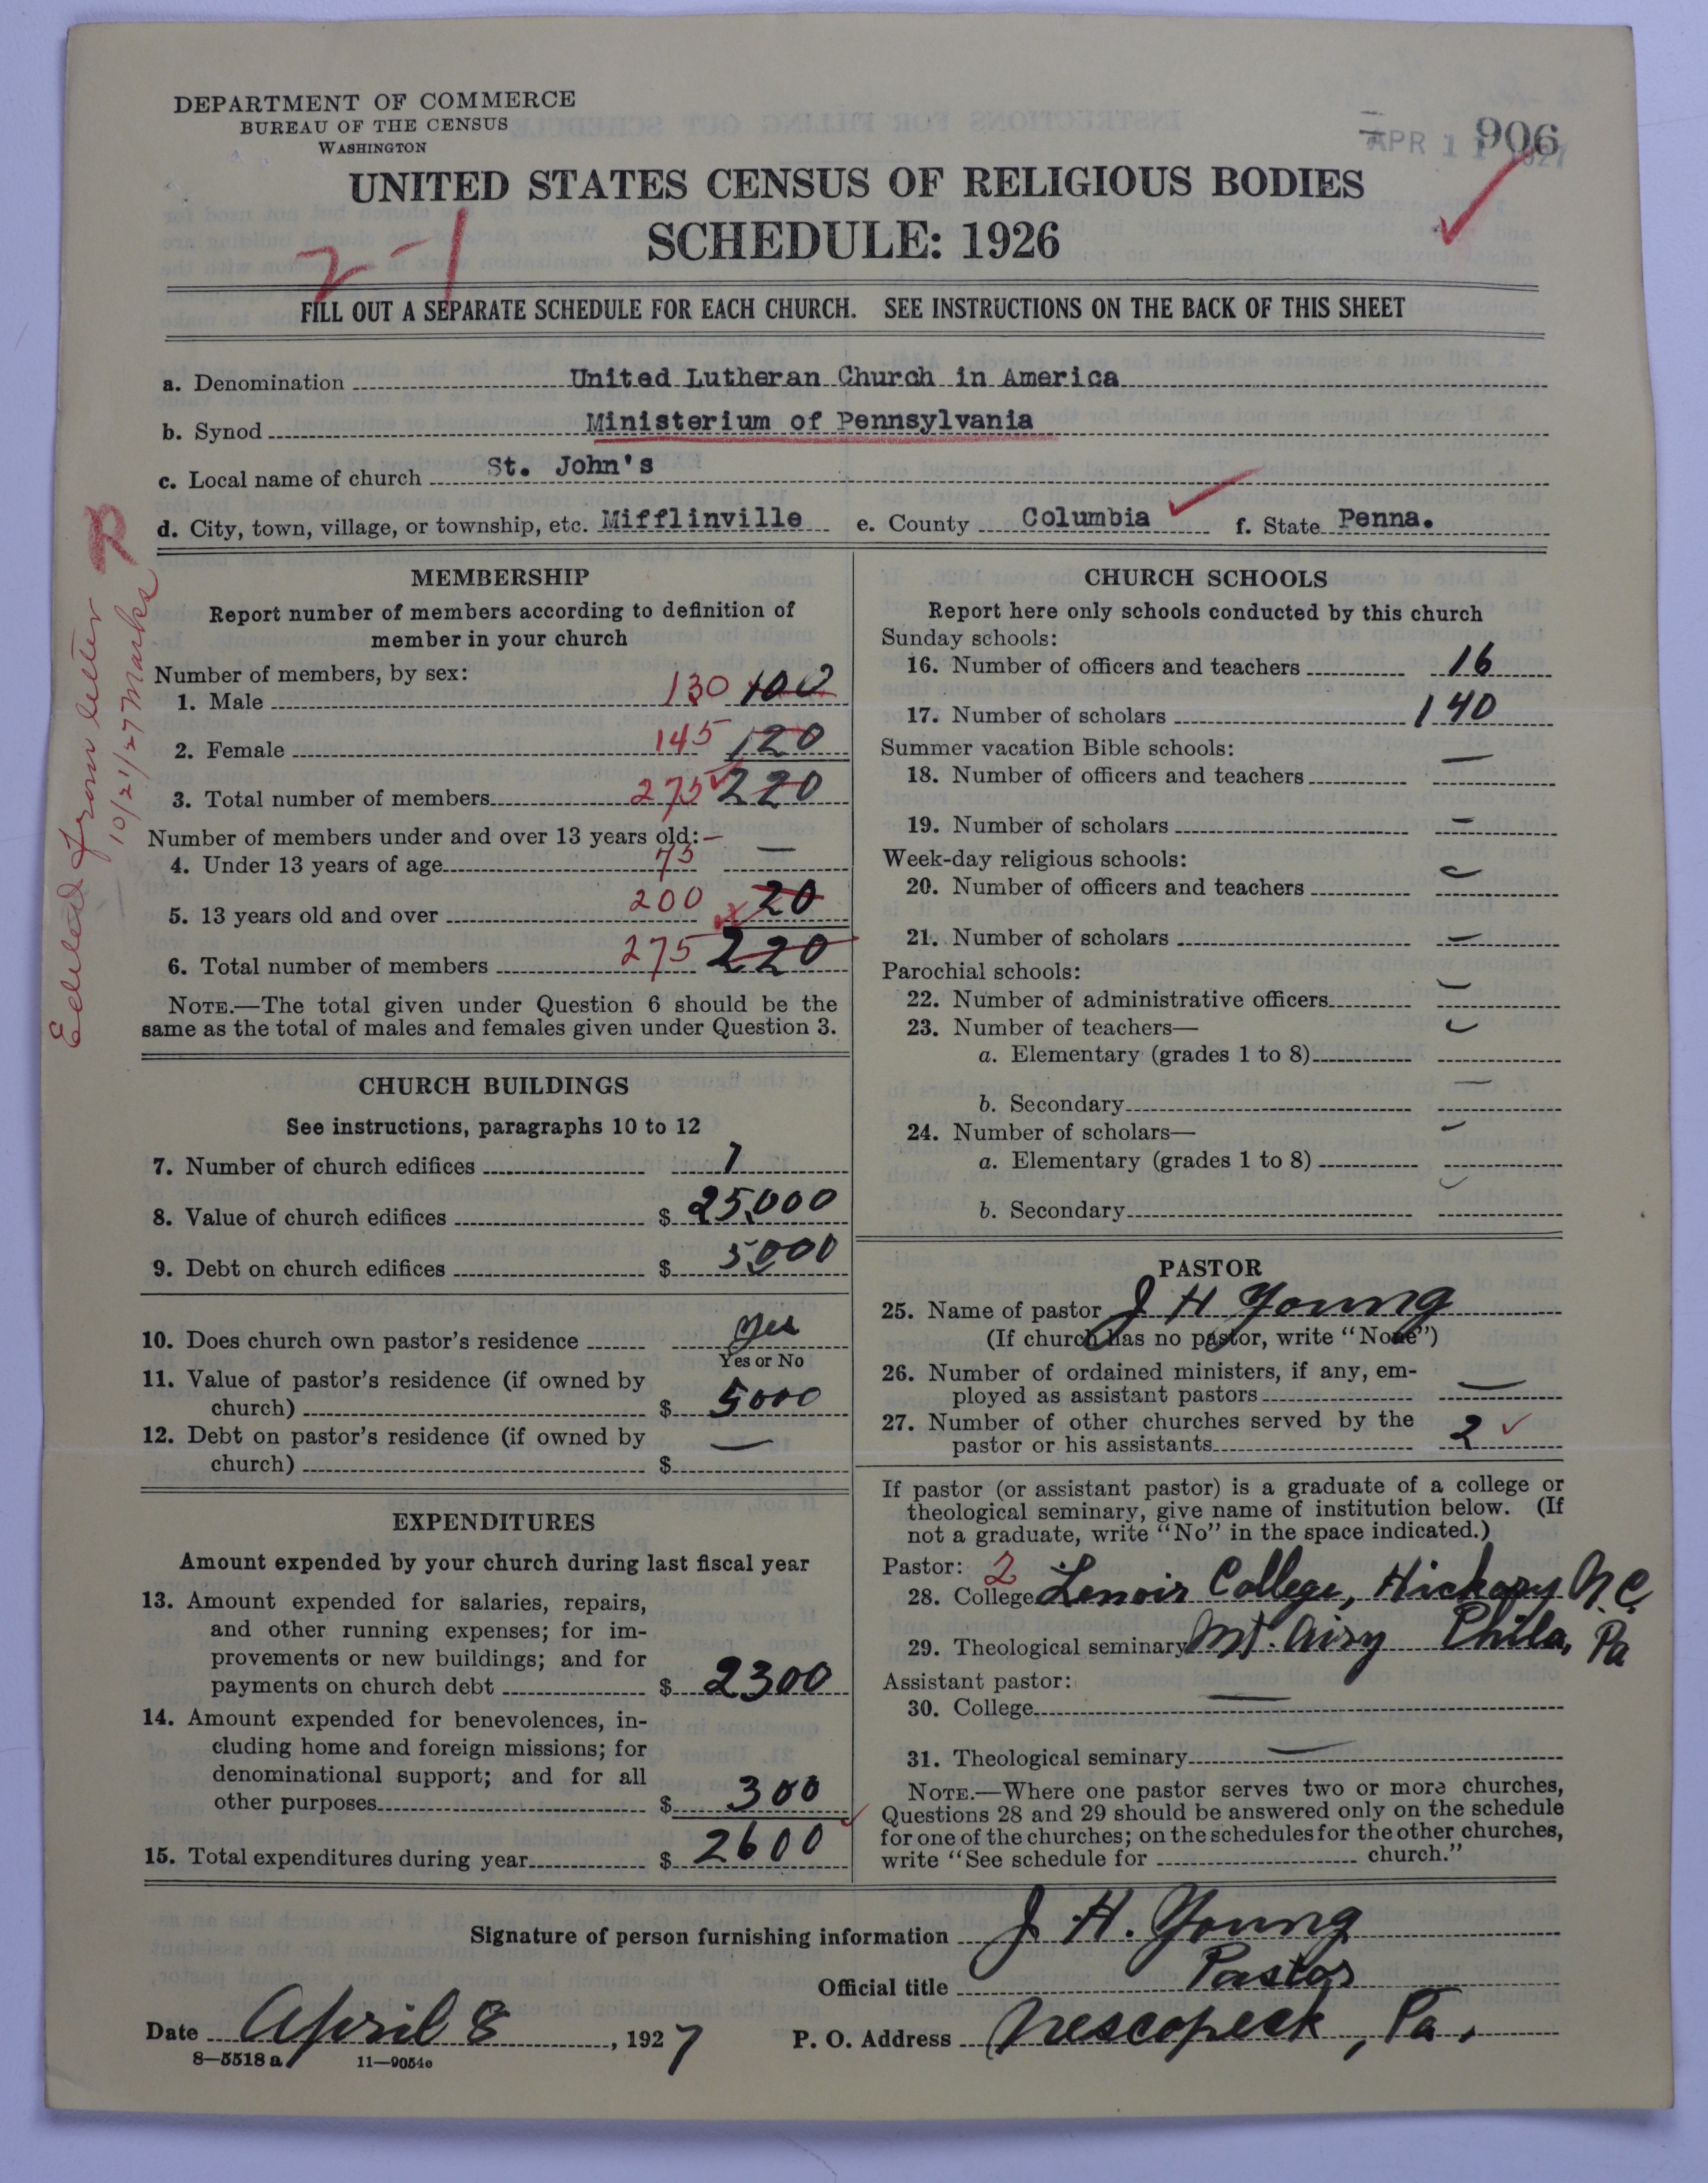 DEPARTMENT OF COMMERCE
BUREAU OF THE CENSUS
WASHINGTON
906
APR 11 1927
UNITED STATES CENSUS OF RELIGIOUS BODIES
SCHEDULE: 1926
2-1
FILL OUT A SEPARATE SCHEDULE FOR EACH CHURCH. SEE INSTRUCTIONS ON THE BACK OF THIS SHEET
a. Denomination United Lutheran Church in America
b. Synod Ministerium of Pennsylvania
c. Local name of church St. John's
d. City, town, village, or township, etc. Mifflinville e. County Columbia f. State Penna.
Edited from letter
10/21/27 Marks
MEMBERSHIP
Report number of members according to definition of
member in your church
Number of members, by sex:
1. Male 130 100
2. Female 145 120
3. Total number of members 275 220
Number of members under and over 13 years old:—
4. Under 13 years of age 75 —
5. 13 years old and over 200 20
6. Total number of members 275 220
NOTE.—The total given under Question 6 should be the
same as the total of males and females given under Question 3.
CHURCH BUILDINGS
See instructions, paragraphs 10 to 12
7. Number of church edifices 1
8. Value of church edifices $ 25,000
9. Debt on church edifices $ 5000
10. Does church own pastor's residence yes
Yes or No
11. Value of pastor's residence (if owned by
church) $ 5000
12. Debt on pastor's residence (if owned by
church) $ —
EXPENDITURES
Amount expended by your church during last fiscal year
13. Amount expended for salaries, repairs,
and other running expenses; for im-
provements or new buildings; and for
payments on church debt $ 2300
14. Amount expended for benevolences, in-
cluding home and foreign missions; for
denominational support; and for all
other purposes $ 300
15. Total expenditures during year $ 2600
CHURCH SCHOOLS
Report here only schools conducted by this church
Sunday schools:
16. Number of officers and teachers 16
17. Number of scholars 140
Summer vacation Bible schools:
18. Number of officers and teachers —
19. Number of scholars —
Week-day religious schools:
20. Number of officers and teachers —
21. Number of scholars —
Parochial schools:
22. Number of administrative officers —
23. Number of teachers—
a. Elementary (grades 1 to 8) —
b. Secondary —
24. Number of scholars—
a. Elementary (grades 1 to 8) —
b. Secondary —
PASTOR
25. Name of pastor J H Young
(If church has no pastor, write "None")
26. Number of ordained ministers, if any, em-
ployed as assistant pastors —
27. Number of other churches served by the
pastor or his assistants 2
If pastor (or assistant pastor) is a graduate of a college or
theological seminary, give name of institution below. (If
not a graduate, write "No" in the space indicated.)
Pastor: 2
28. College Lenoir College, Hickory N.C.
29. Theological seminary Mt. Airy Phila, Pa
Assistant pastor:
30. College —
31. Theological seminary —
NOTE.—Where one pastor serves two or more churches,
Questions 28 and 29 should be answered only on the schedule
for one of the churches; on the schedules for the other churches,
write "See schedule for ---------- church."
Signature of person furnishing information J. H. Young
Official title Pastor
Date April 8, 1927 P. O. Address Nescopeck, Pa.
8—5518 a 11—9054c